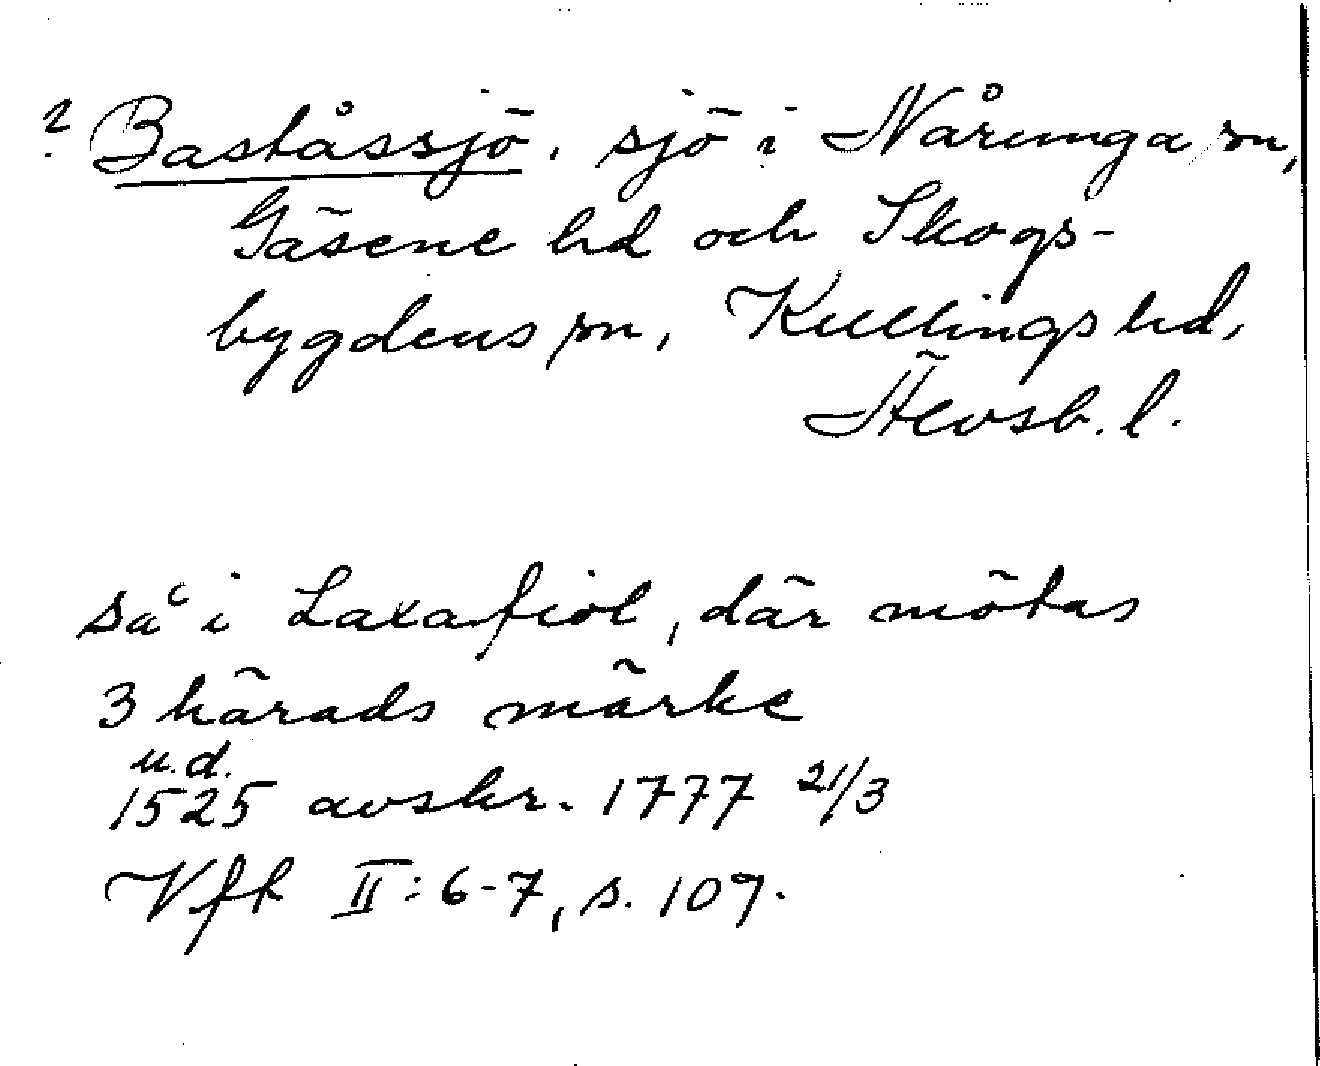 ? Baståssjö, sjö i Nårunga sn,
Gäsene hd och Skogs-
bygdens sn, Kullings hd,
Älvsb. l.
så i Laxafiol, där mötas
3 härads märke
u.d.
1525 avskr. 1777 21/3
Vft II:6-7, s. 107.